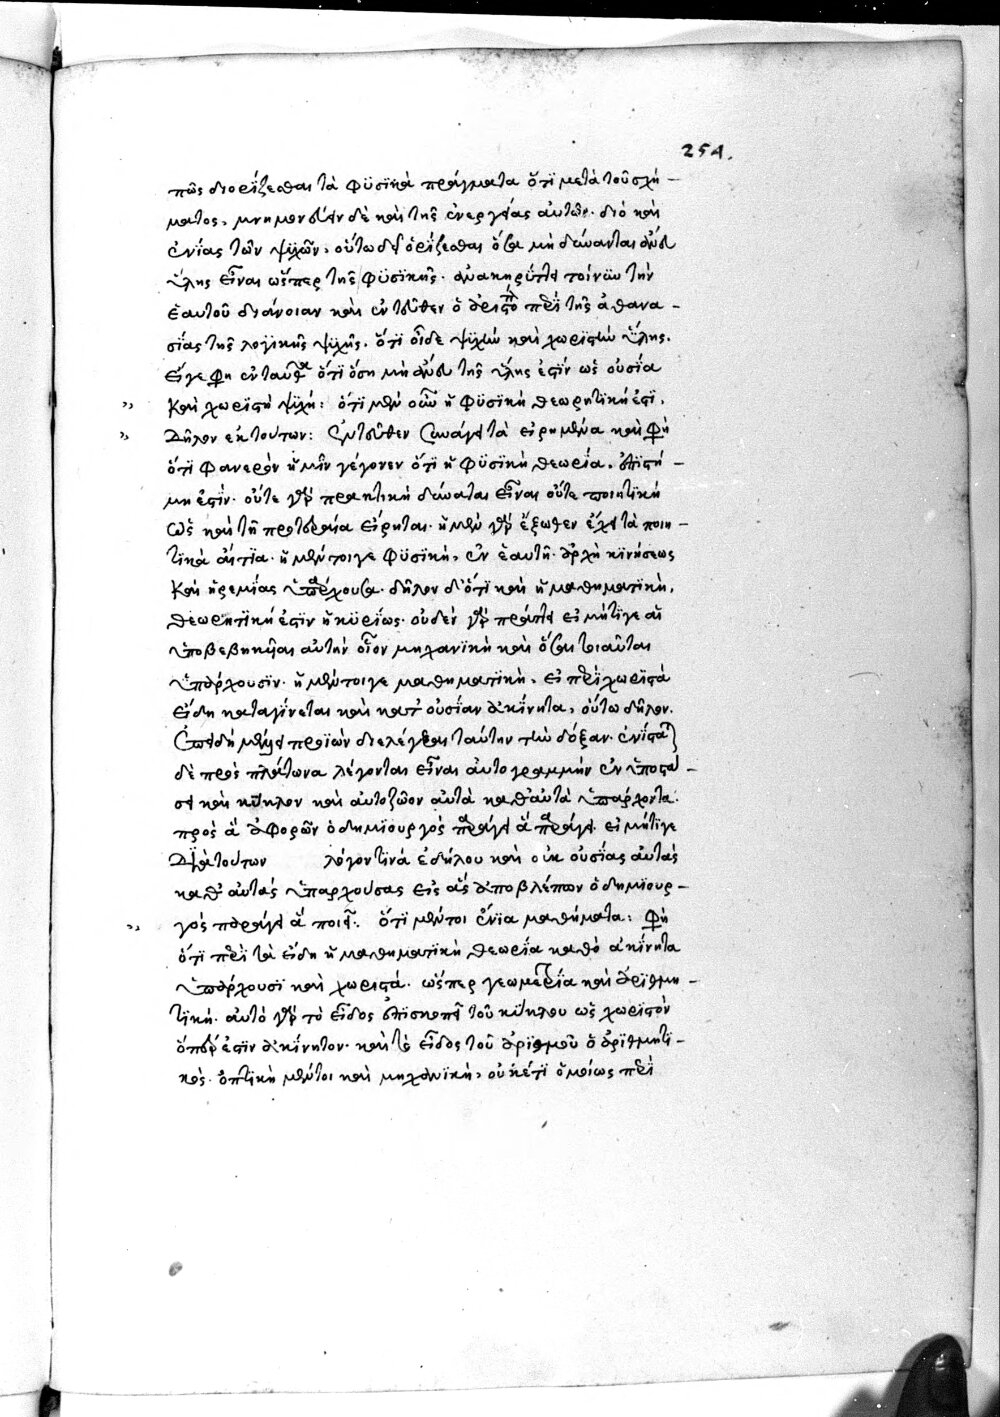 254.
πῶς διορίζεσθαι τὰ φϋσϊκὰ πράγματα ὅτϊ μετὰ τοῦ σχή-
ματος, μνημονεύειν δὲ καὶ τῆς ἐνεργείας αὐτῶν. διὸ καὶ
ἐνίας τῶν ψϋχῶν, οὕτω δεῖ ὁρίζεσθαι ὅσαι μὴ δύνανται ἄνευ
ὕλης εἶναι ὥσπερ τῆς φϋσϊκῆς. ἀνακηρύττει τοίνϋν τὴν
ἑαυτοῦ διάνοιαν καὶ ἐντεῦθεν ὁ περὶ τῆς ἀθανα-
σίας τῆς λογϊκῆς ψϋχῆς. ὅτϊ οἶδε ψϋχὴν καὶ χωριστὴν ὕλης.
εἴγε φη ἐνταῦθα ὅτϊ ὅση μὴ ἄνευ τῆς ὕλης ἐστὶν ὡς οὐσία
καὶ χωριστὴ ψϋχή: ὅτι μὲν οὖν ἡ φϋσϊκὴ θεωρητική ἐστϊ,
δῆλον ἐκ τούτων: ἐντεῦθεν συνάγει τὰ εἰρημένα καὶ φη
ὅτϊ φανερὸν ἡμῖν γέγονεν ὅτϊ ἡ φϋσϊκὴ θεωρία, ἐπιστή-
μη ἐστίν. οὔτε γὰρ πρακτικὴ δύναται εἶναι οὔτε ποιητϊκὴ
ὡς καὶ τῆ προτεραία εἴρηται. ἡ μὲν γὰρ ἔξωθεν ἔχει τὰ ποιη-
τϊκὰ αἴτϊα. ἡ μέντοιγε φϋσϊκὴ, ἐν ἑαυτῆ. ἀρχὴ κϊνήσεως
καὶ ἠρεμίας ὑπάρχουσα. δῆλον δ' ὅτϊ καὶ ἡ μαθηματϊκὴ,
θεωρητϊκή ἐστϊν ἡ κϋρίως. οὐδὲν γὰρ πράττει εἰ μήτϊγε αἱ
ὑποβεβηκῆαι αὐτὴν οἷον μηχανϊκὴ καὶ ὅσαι τοιαῦται
ὑπάρχουσϊν. ἡ μέντοιγε μαθηματϊκὴ, εἰ περὶ χωρϊστὰ
εἴδη καταγίνεται καὶ κατ' οὐσίαν ἀκίνητα, οὕτω δῆλον.
ἐπειδὴ προϊὼν διελέγξει ταύτην τὴν δόξαν. ἐνίστα
δὲ πρὸς πλάτωνα λέγοντα εἶναι αὐτογραμμὴν ἐν ὑποστά-
σει καὶ κύκλον καὶ αὐτοζῶον αὐτὰ καθ' αὑτὰ ὑπάρχοντα.
πρὸς ἃ ἀφορῶν ὁ δημϊουργὸς παράγει ἃ παράγει. εἰ μήτϊγε
διὰ τούτων λόγον τϊνὰ ἐδήλου καὶ οὐκ οὐσίας αὐτὰς
καθ' αὑτὰς ὑπαρχούσας εἰς ἃς ἀποβλέπων ὁ δημϊουρ-
γὸς παράγει ἃ ποιεῖ. ὅτϊ μέντοι ἔνϊα μαθήματα: φη
ὅτϊ περὶ τὰ εἴδη ἡ μαθηματϊκὴ θεωρία καθὸ ἀκίνητα
ὑπάρχουσϊ καὶ χωρϊστά. ὥσπερ γεωμετρία καὶ ἀρϊθμη-
τϊκή. αὐτὸ γὰρ τὸ εἶδος ἐπϊσκοπεῖ τοῦ κύκλου ὡς χωρϊστὸν
ὅπερ ἐστὶν ἀκίνητον. καὶ τὸ εἶδος τοῦ ἀρϊθμοῦ ὁ ἀρϊθμητϊ-
κός. ὀπτϊκὴ μέντοι καὶ μηχανϊκὴ, οὐκέτϊ ὁμοίως περὶ